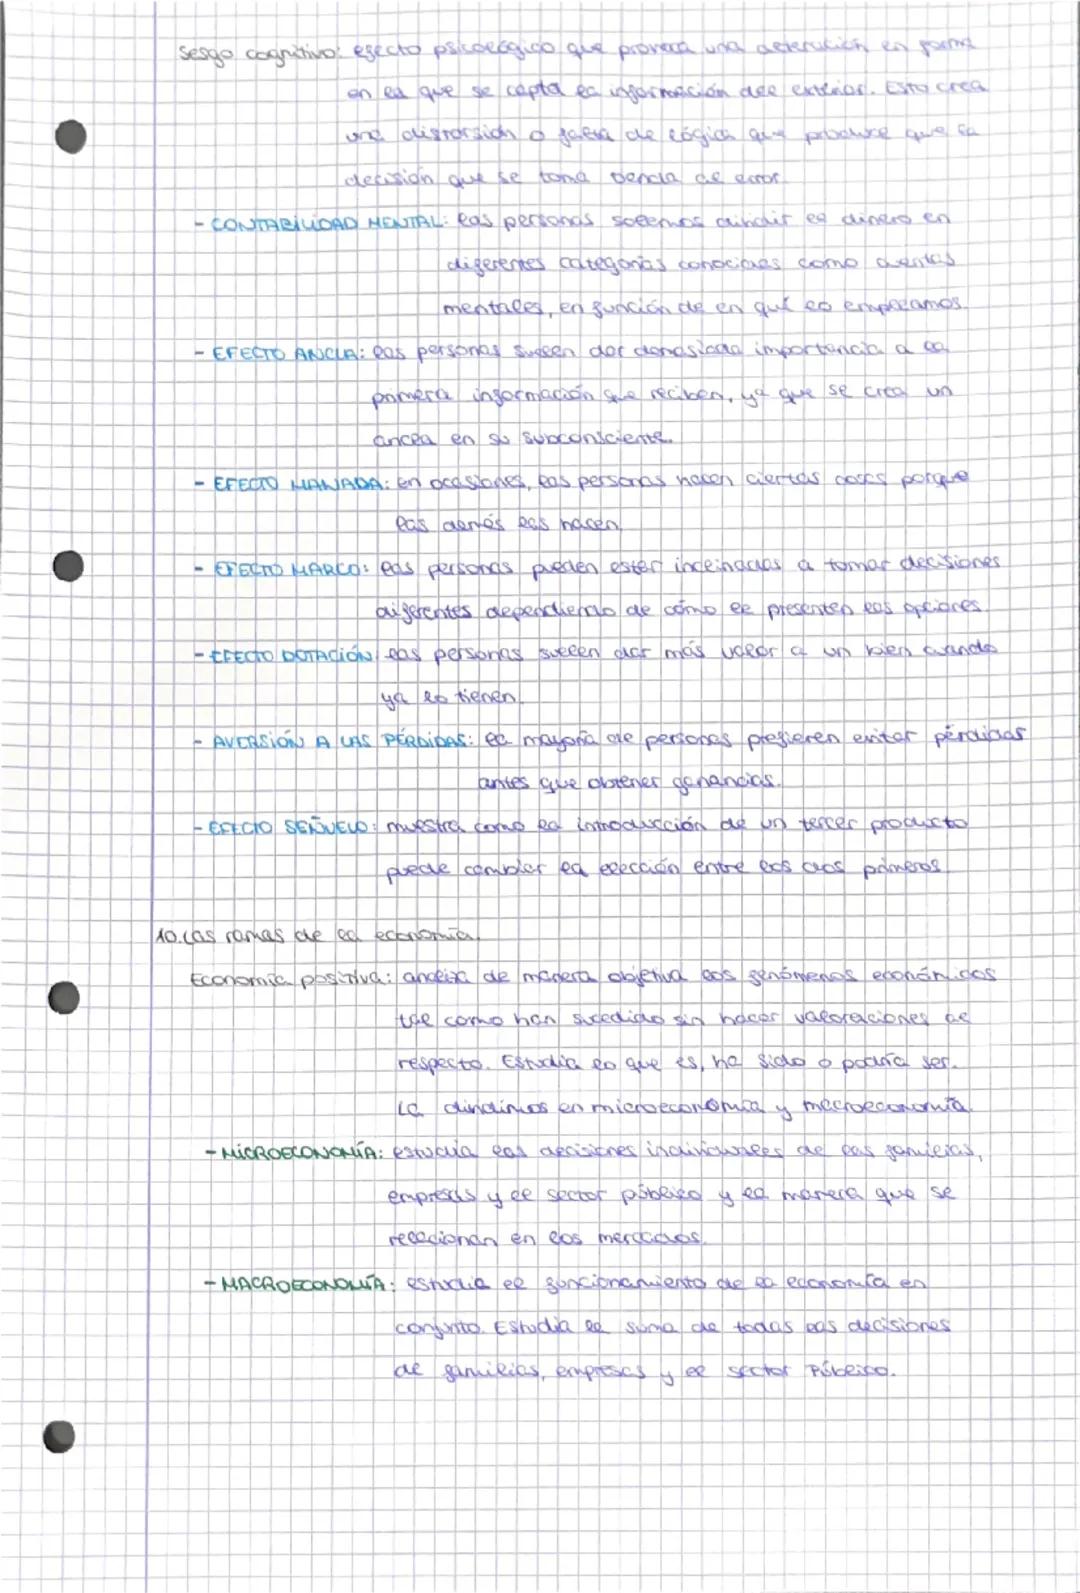 Sesgo cognitivo: efecto psicológico que provoca una alteración en forma
en la que se capta la información del exterior. Esto crea
una distorsión o falta de lógica que produce que la
decisión que se toma penda de error.
- CONTABILIDAD MENTAL: las personas solemos dividir el dinero en
diferentes categorías conocidas como cuentas
mentales, en función de en qué lo empleamos.
- EFECTO ANCLA: las personas suelen dar demasiada importancia a la
primera información que reciben, ya que se crea un
ancla en su subconsciente.
- EFECTO MANADA: en ocasiones, las personas hacen ciertas cosas porque
las demás las hacen.
- EFECTO MARCO: las personas pueden estar inclinadas a tomar decisiones
diferentes dependiendo de cómo le presenten las opciones.
- EFECTO DOTACIÓN: las personas suelen dar más valor a un bien cuando
ya lo tienen.
- AVERSIÓN A LAS PÉRDIDAS: la mayoría de personas prefieren evitar pérdidas
antes que obtener ganancias.
- EFECTO SEÑUELO: muestra como la introducción de un tercer producto
puede cambiar la elección entre los dos primeros.
10. Las ramas de la economía.
Economía positiva: analiza de manera objetiva los fenómenos económicos
tal como han sucedido sin hacer valoraciones al
respecto. Estudia lo que es, ha sido o podría ser.
La dividimos en microeconomía y macroeconomía.
- MICROECONOMÍA: estudia las decisiones individuales de las familias,
empresas y el sector público y la manera que se
relacionan en los mercados.
- MACROECONOMÍA: estudia el funcionamiento de la economía en
conjunto. Estudia la suma de todas las decisiones
de familias, empresas y el sector Público.